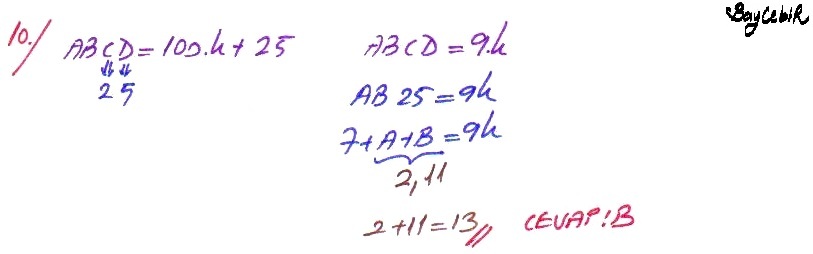 BayCebiR
10./ ABCD = 100.k + 25 ABCD = 9.k
⇓⇓
25 AB25 = 9k
7 + A + B = 9k
2, 11
2 + 11 = 13 // CEVAP: B